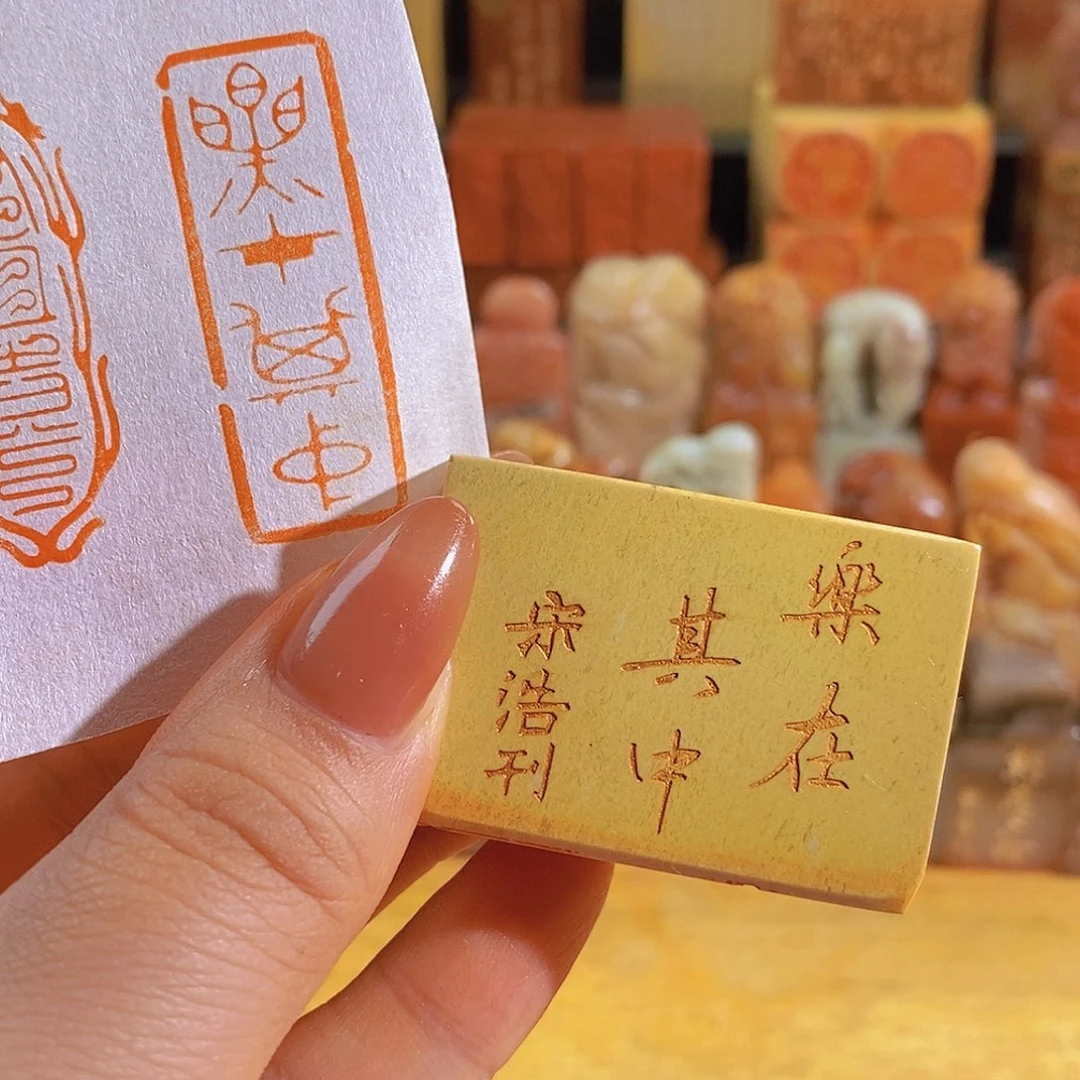 樂在其中
樂在
其中
宋浩刊